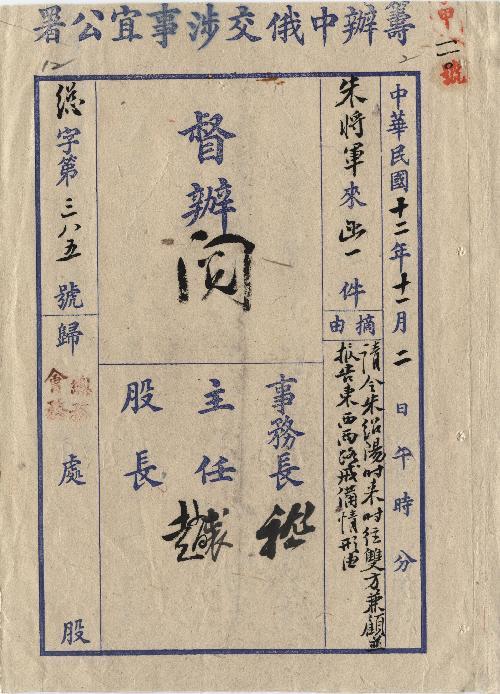 籌辦中俄交涉事宜公署
甲一一〇號
中華民國十二年十一月二日午時分
朱將軍來函一件
摘由
請令朱紹陽時来時往雙方兼顧並
报告東西兩路戒備情形由
督辦
閱
事務長
主任
股長
總字第三八五號歸處股